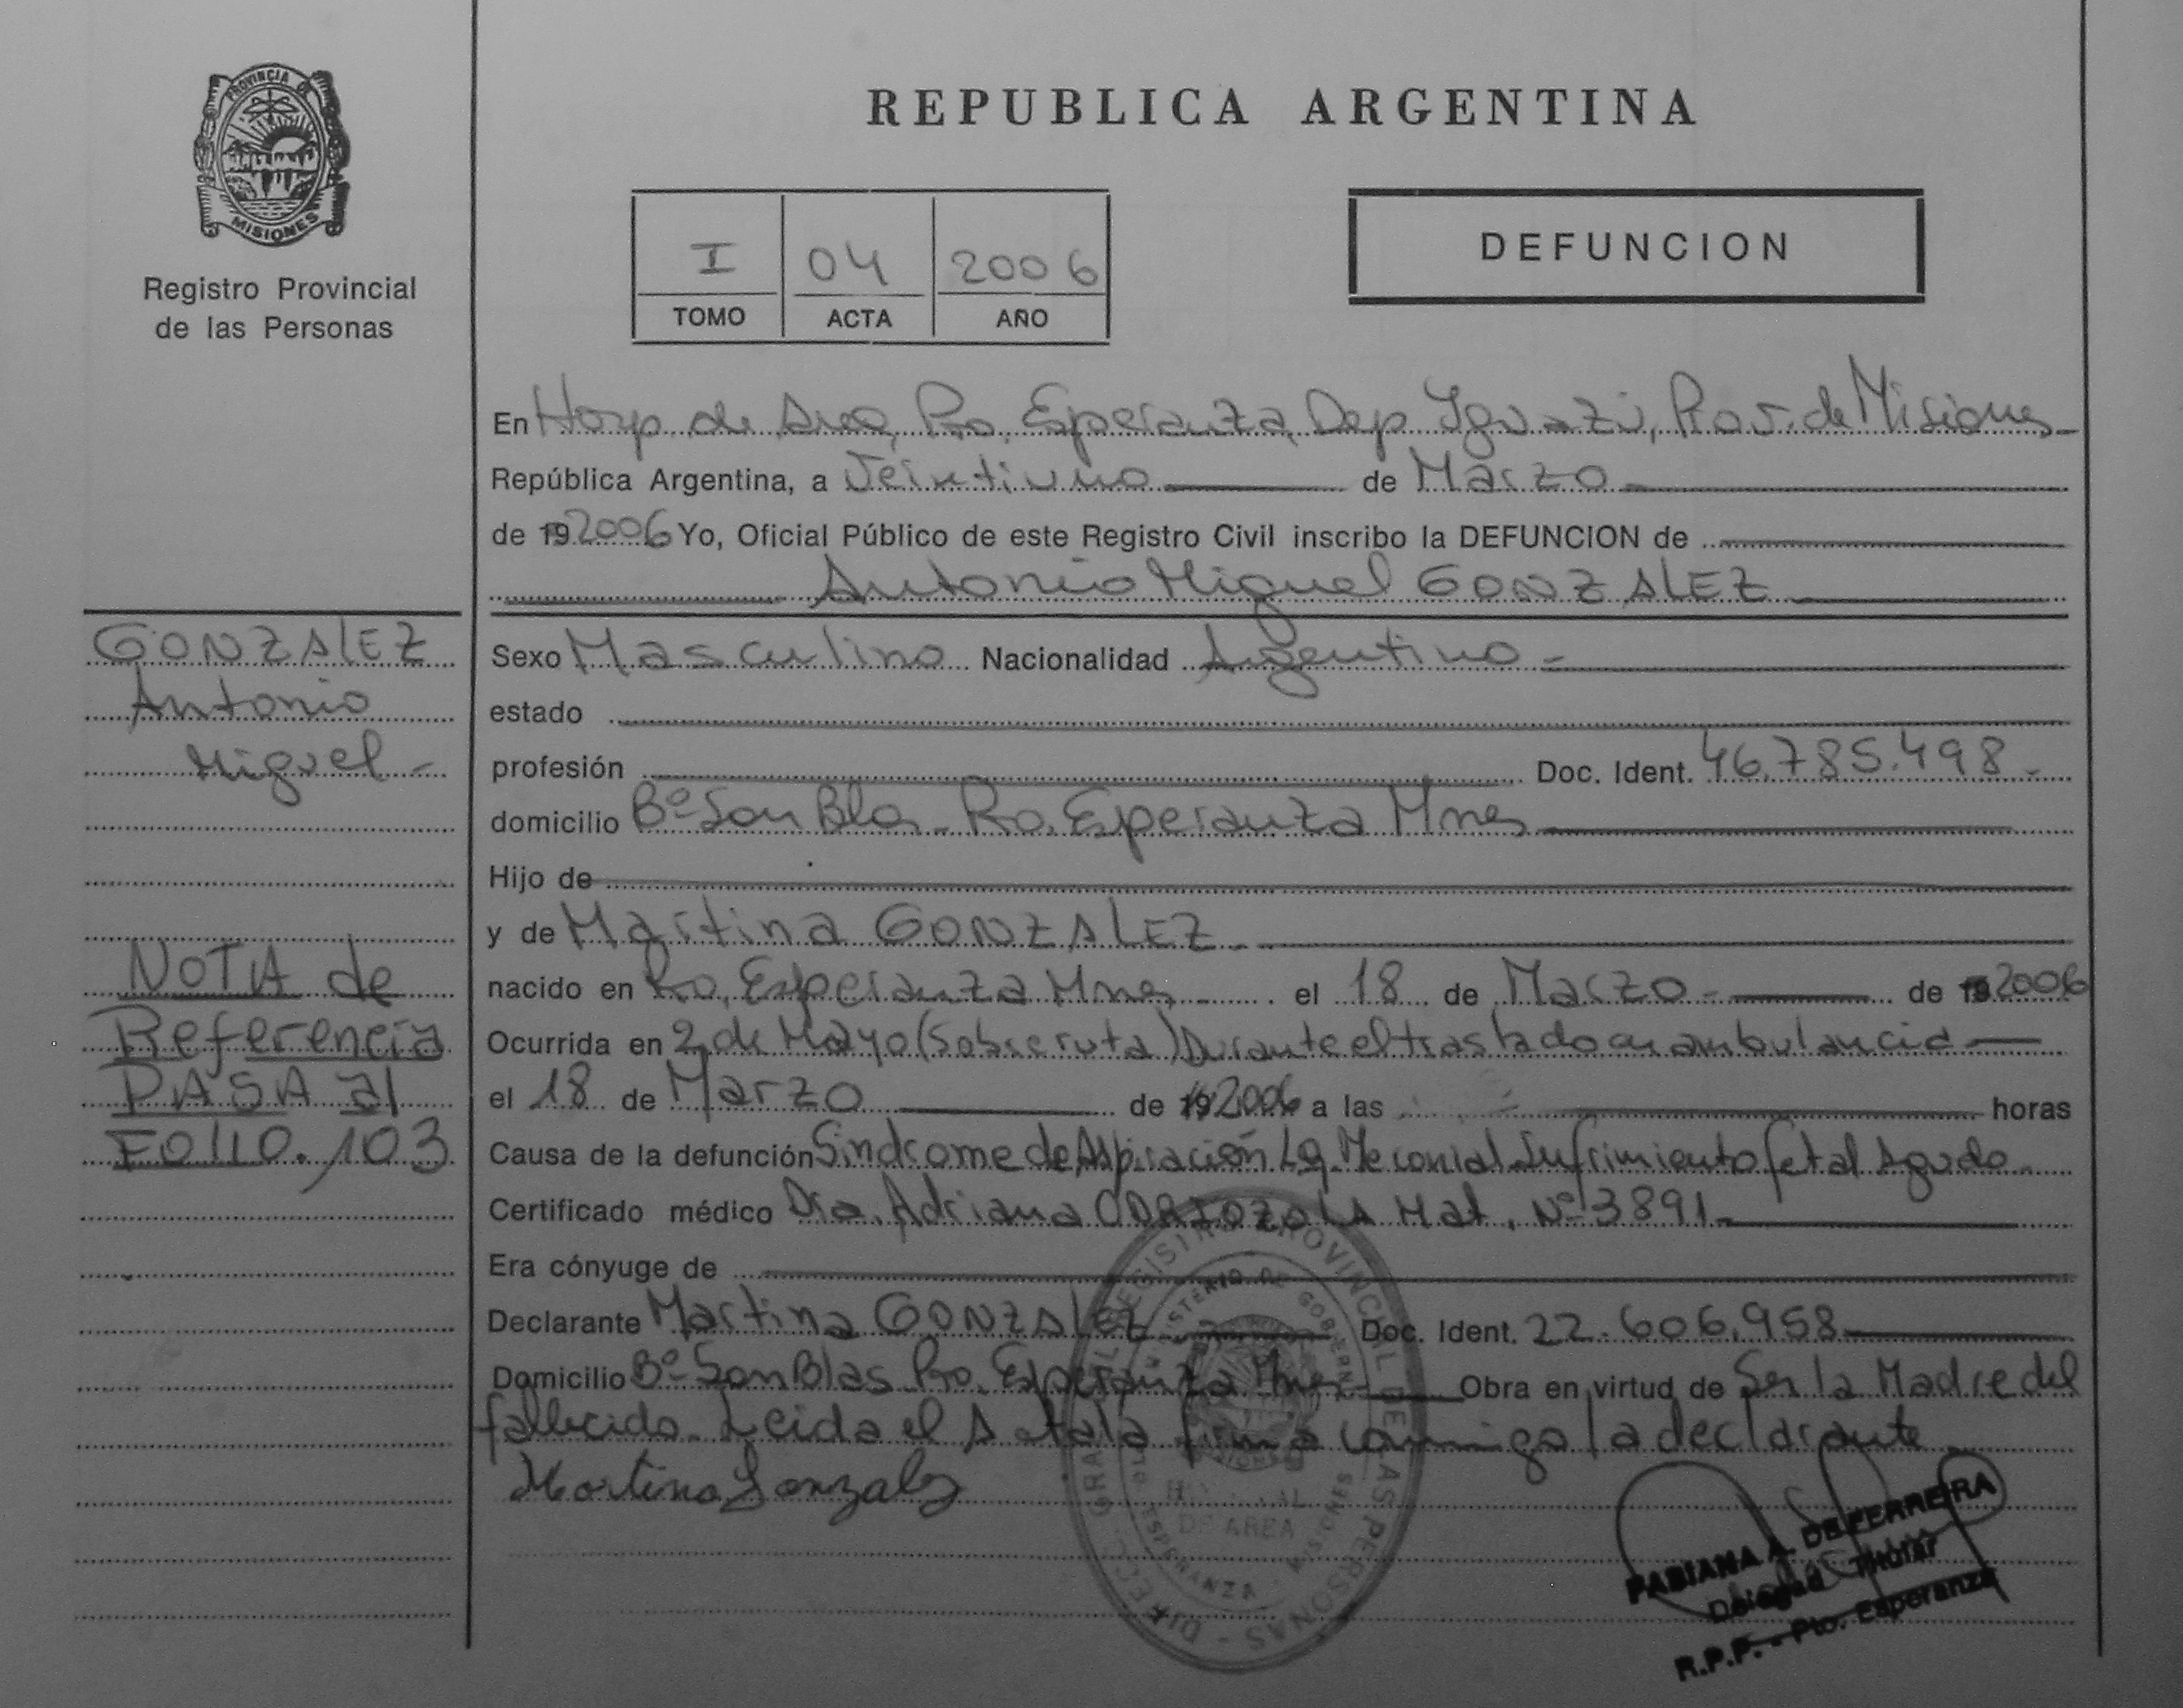 PROVINCIA DE
MISIONES
Registro Provincial
de las Personas
REPUBLICA ARGENTINA
I 04 2006
TOMO ACTA AÑO
DEFUNCION
En Hosp. de Area, Pto. Esperanza, Dep Iguazú, Prov. de Misiones
República Argentina, a Veintiuno de Marzo
de 19 2006 Yo, Oficial Público de este Registro Civil inscribo la DEFUNCION de
Antonio Miguel GONZALEZ
GONZALEZ
Antonio
Miguel
Sexo Masculino Nacionalidad Argentino
estado
profesión Doc. Ident. 46.785.498
domicilio Bº San Blas Pto. Esperanza Mnes
Hijo de
y de Martina GONZALEZ
nacido en Pto. Esperanza Mnes el 18 de Marzo de 19 2006
NOTA de
Referencia
PASA al
FOLIO. 103
Ocurrida en 2 de Mayo (Sobre ruta) Durante el traslado en ambulancia
el 18 de Marzo de 19 2006 a las horas
Causa de la defunción Sindrome de Aspiración Lq. Meconial Sufrimiento fetal Agudo
Certificado médico Dra. Adriana ODRIOZOLA Mat. Nº 3891
Era cónyuge de
Declarante Martina GONZALEZ Doc. Ident. 22.606.958
Domicilio Bº San Blas Pto. Esperanza Mnes Obra en virtud de Ser la Madre del
fallecido. Leida el Acta la firma conmigo la declarante
Martina Gonzalez
DIREC. GRAL. REGISTRO PROVINCIAL DE LAS PERSONAS
MINISTERIO DE GOBIERNO
DE AREA
ESPERANZA - MISIONES
FABIANA A. DE FERREIRA
Delegada Titular
R.P.P. - Pto. Esperanza